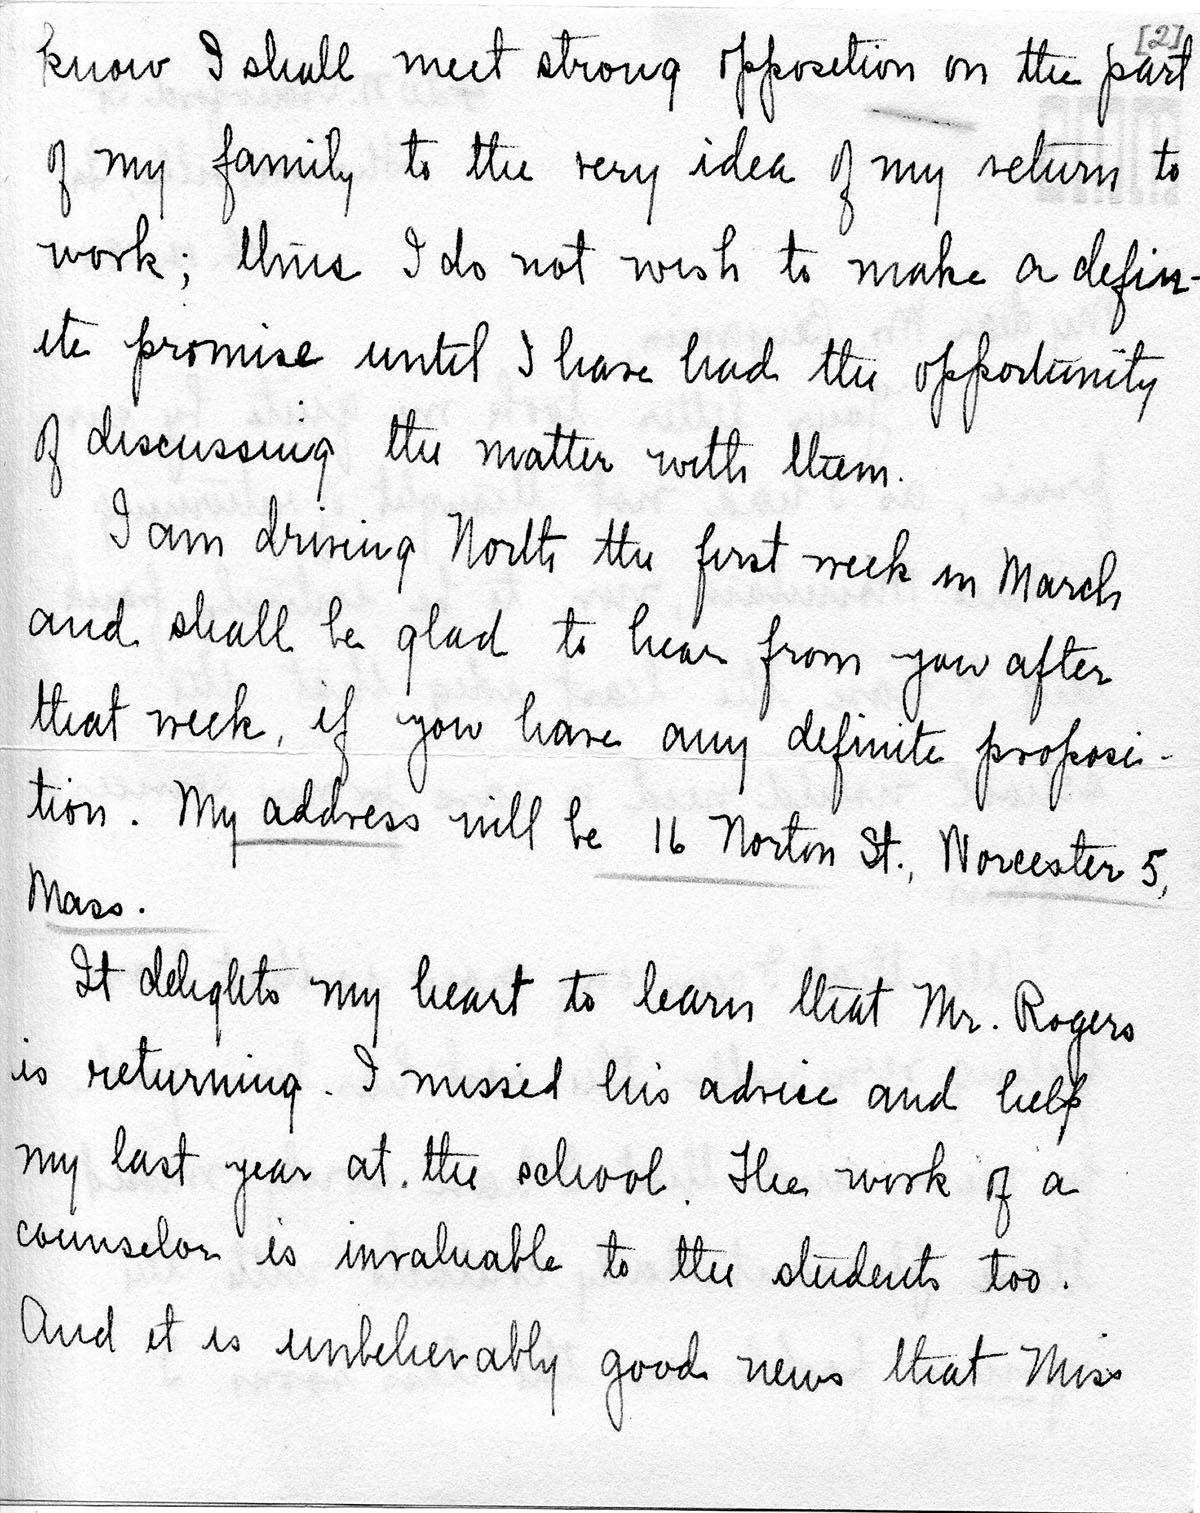 [2]
know I shall meet strong opposition on the part
of my family to the very idea of my return to
work; thus I do not wish to make a defin-
ite promise until I have had the opportunity
of discussing the matter with them.
I am driving North the first week in March
and shall be glad to hear from you after
that week, if you have any definite proposi-
tion. My address will be 16 Norton St., Worcester 5,
Mass.
It delights my heart to learn that Mr. Rogers
is returning. I missed his advice and help
my last year at the school. The work of a
counselor is invaluable to the students too.
And it is unbelievably good news that Miss